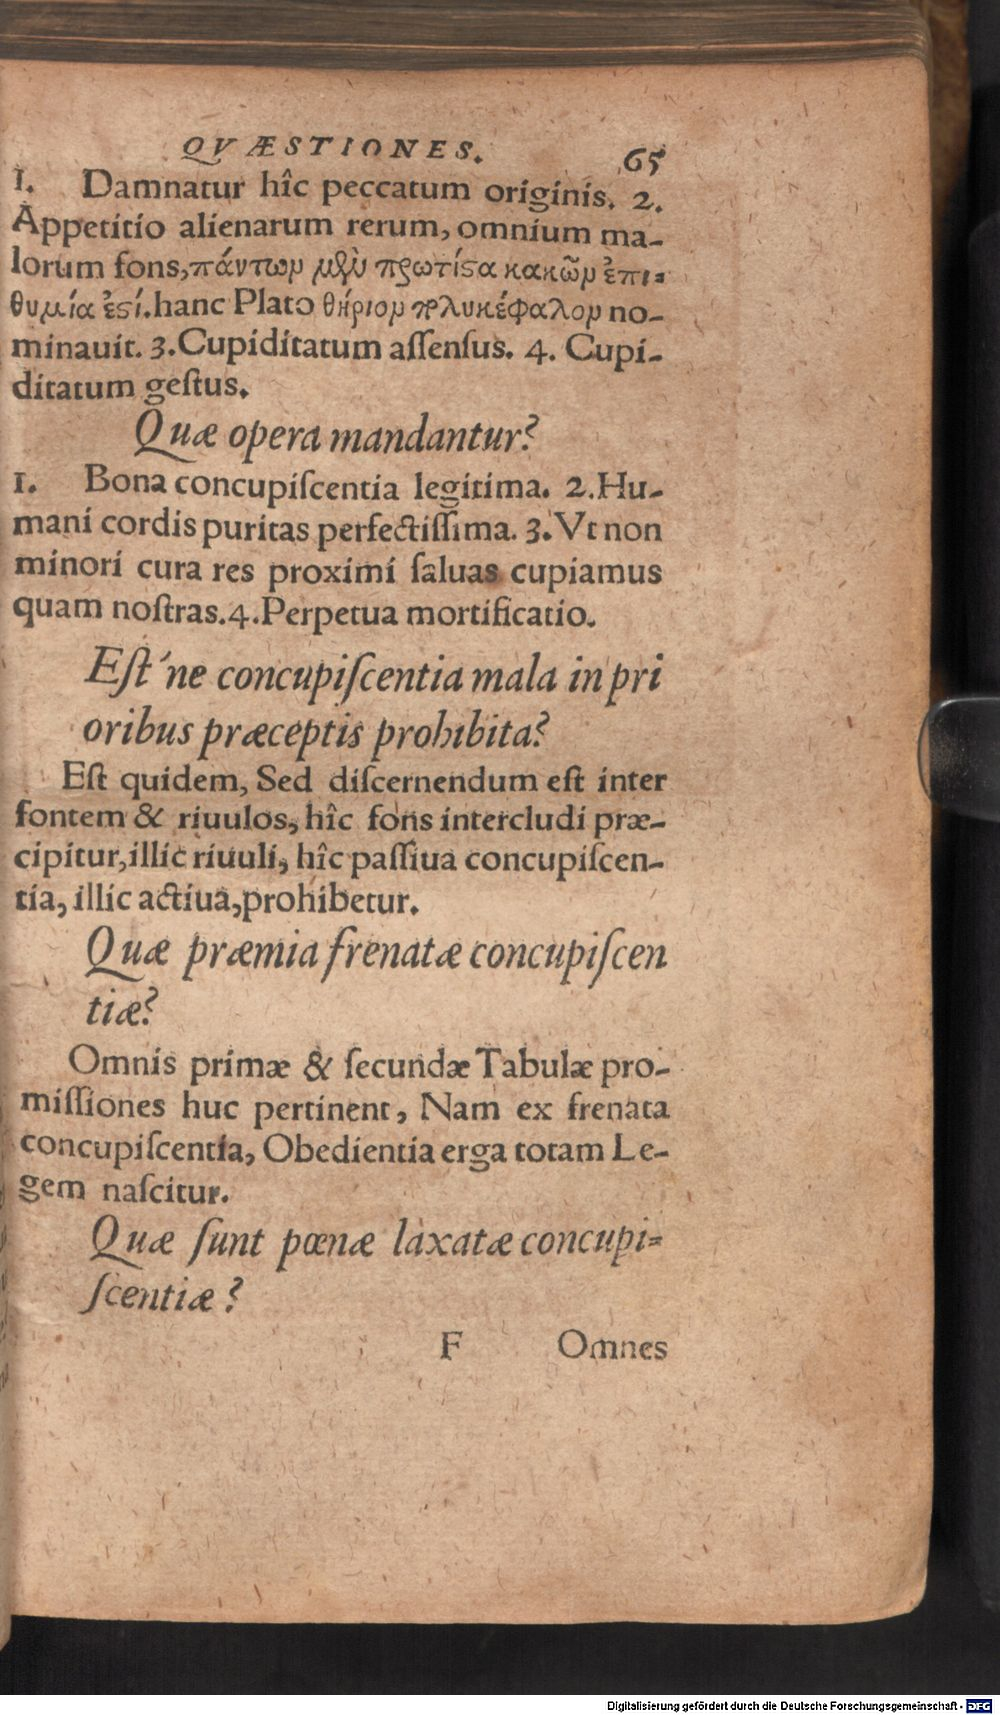 QVÆSTIONES. 65
1. Damnatur hîc peccatum originis. 2.
Appetitio alienarum rerum, omnium ma-
lorum fons, πάντων μὲν πρωτίϛα κακῶν ἐπι-
θυμία ἐϛί. hanc Plato θήριον πολυκέφαλον no-
minauit. 3. Cupiditatum aſſenſus. 4. Cupi-
ditatum geſtus.
Quæ opera mandantur?
1. Bona concupiſcentia legitima. 2. Hu-
mani cordis puritas perfectiſſima. 3. Vt non
minori cura res proximi ſaluas cupiamus
quam noſtras. 4. Perpetua mortificatio.
Eſt'ne concupiſcentia mala in pri
oribus præceptis prohibita?
Eſt quidem, Sed diſcernendum eſt inter
fontem & riuulos, hîc fons intercludi præ-
cipitur, illic riuuli, hîc paſſiua concupiſcen-
tia, illic actiua, prohibetur.
Quæ præmia frenatæ concupiſcen
tiæ?
Omnis primæ & ſecundæ Tabulæ pro-
miſſiones huc pertinent, Nam ex frenata
concupiſcentia, Obedientia erga totam Le-
gem naſcitur.
Quæ ſunt pœnæ laxatæ concupi-
ſcentiæ?
F Omnes
Digitalisierung gefördert durch die Deutsche Forschungsgemeinschaft - DFG